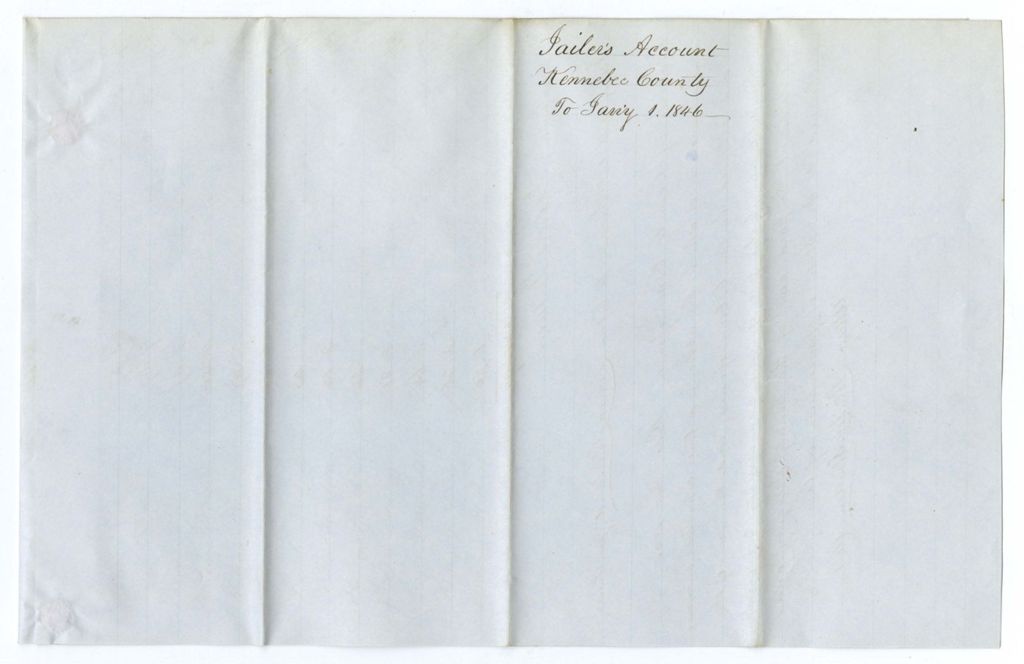 Jailer's Account
Kennebec County
To Jan'y 1. 1846